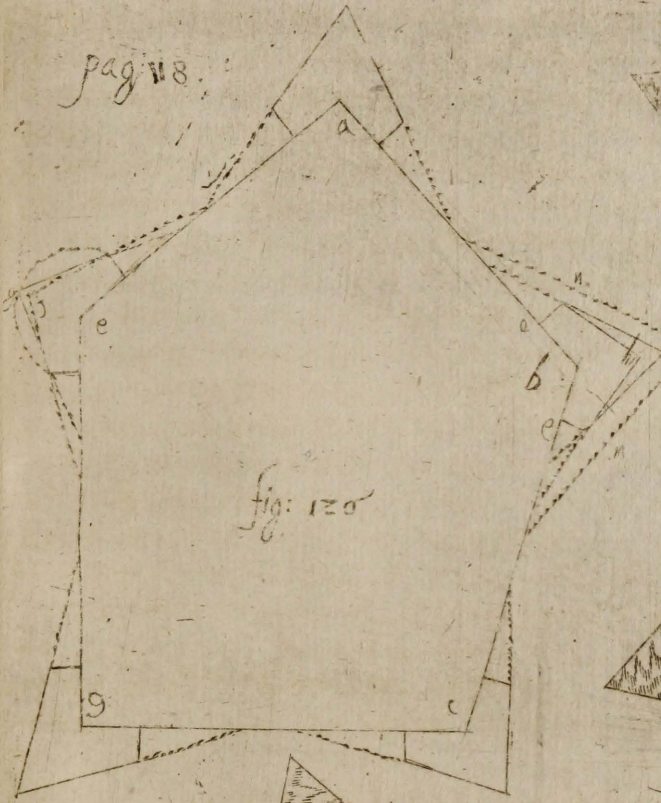 pag 118.
a
n
e
e
b
e
n
fig: 120
g
c